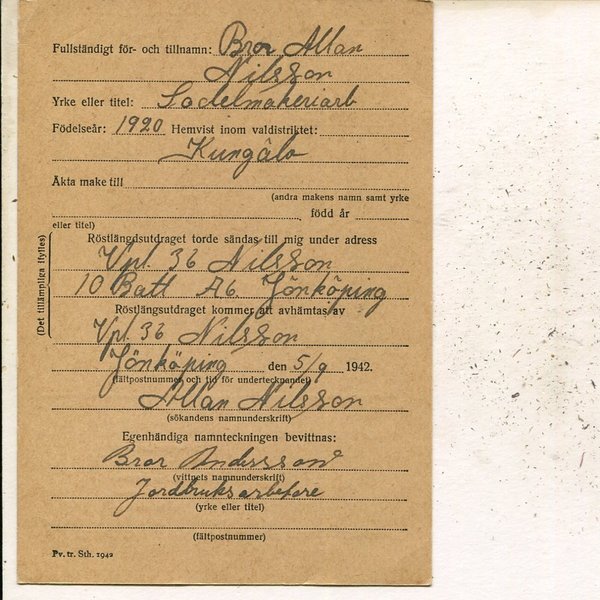 Fullständigt för- och tillnamn: Bror Allan
Nilsson
Yrke eller titel: Sadelmakeriarb
Födelseår: 1920 Hemvist inom valdistriktet:
Kungälv
Äkta make till
(andra makens namn samt yrke
född år
eller titel)
(Det tillämpliga ifylles)
Röstlängdsutdraget torde sändas till mig under adress
Vpl. 36 Nilsson
10 Batt A6 Jönköping
Röstlängsutdraget kommer att avhämtas av
Vpl. 36 Nilsson
Jönköping den 5/9 1942.
(fältpostnummer och tid för undertecknandet)
Allan Nilsson
(sökandens namnunderskrift)
Egenhändiga namnteckningen bevittnas:
Bror Andersson
(vittnets namnunderskrift)
Jordbruksarbetare
(yrke eller titel)
(fältpostnummer)
Pv. tr. Sth. 1942